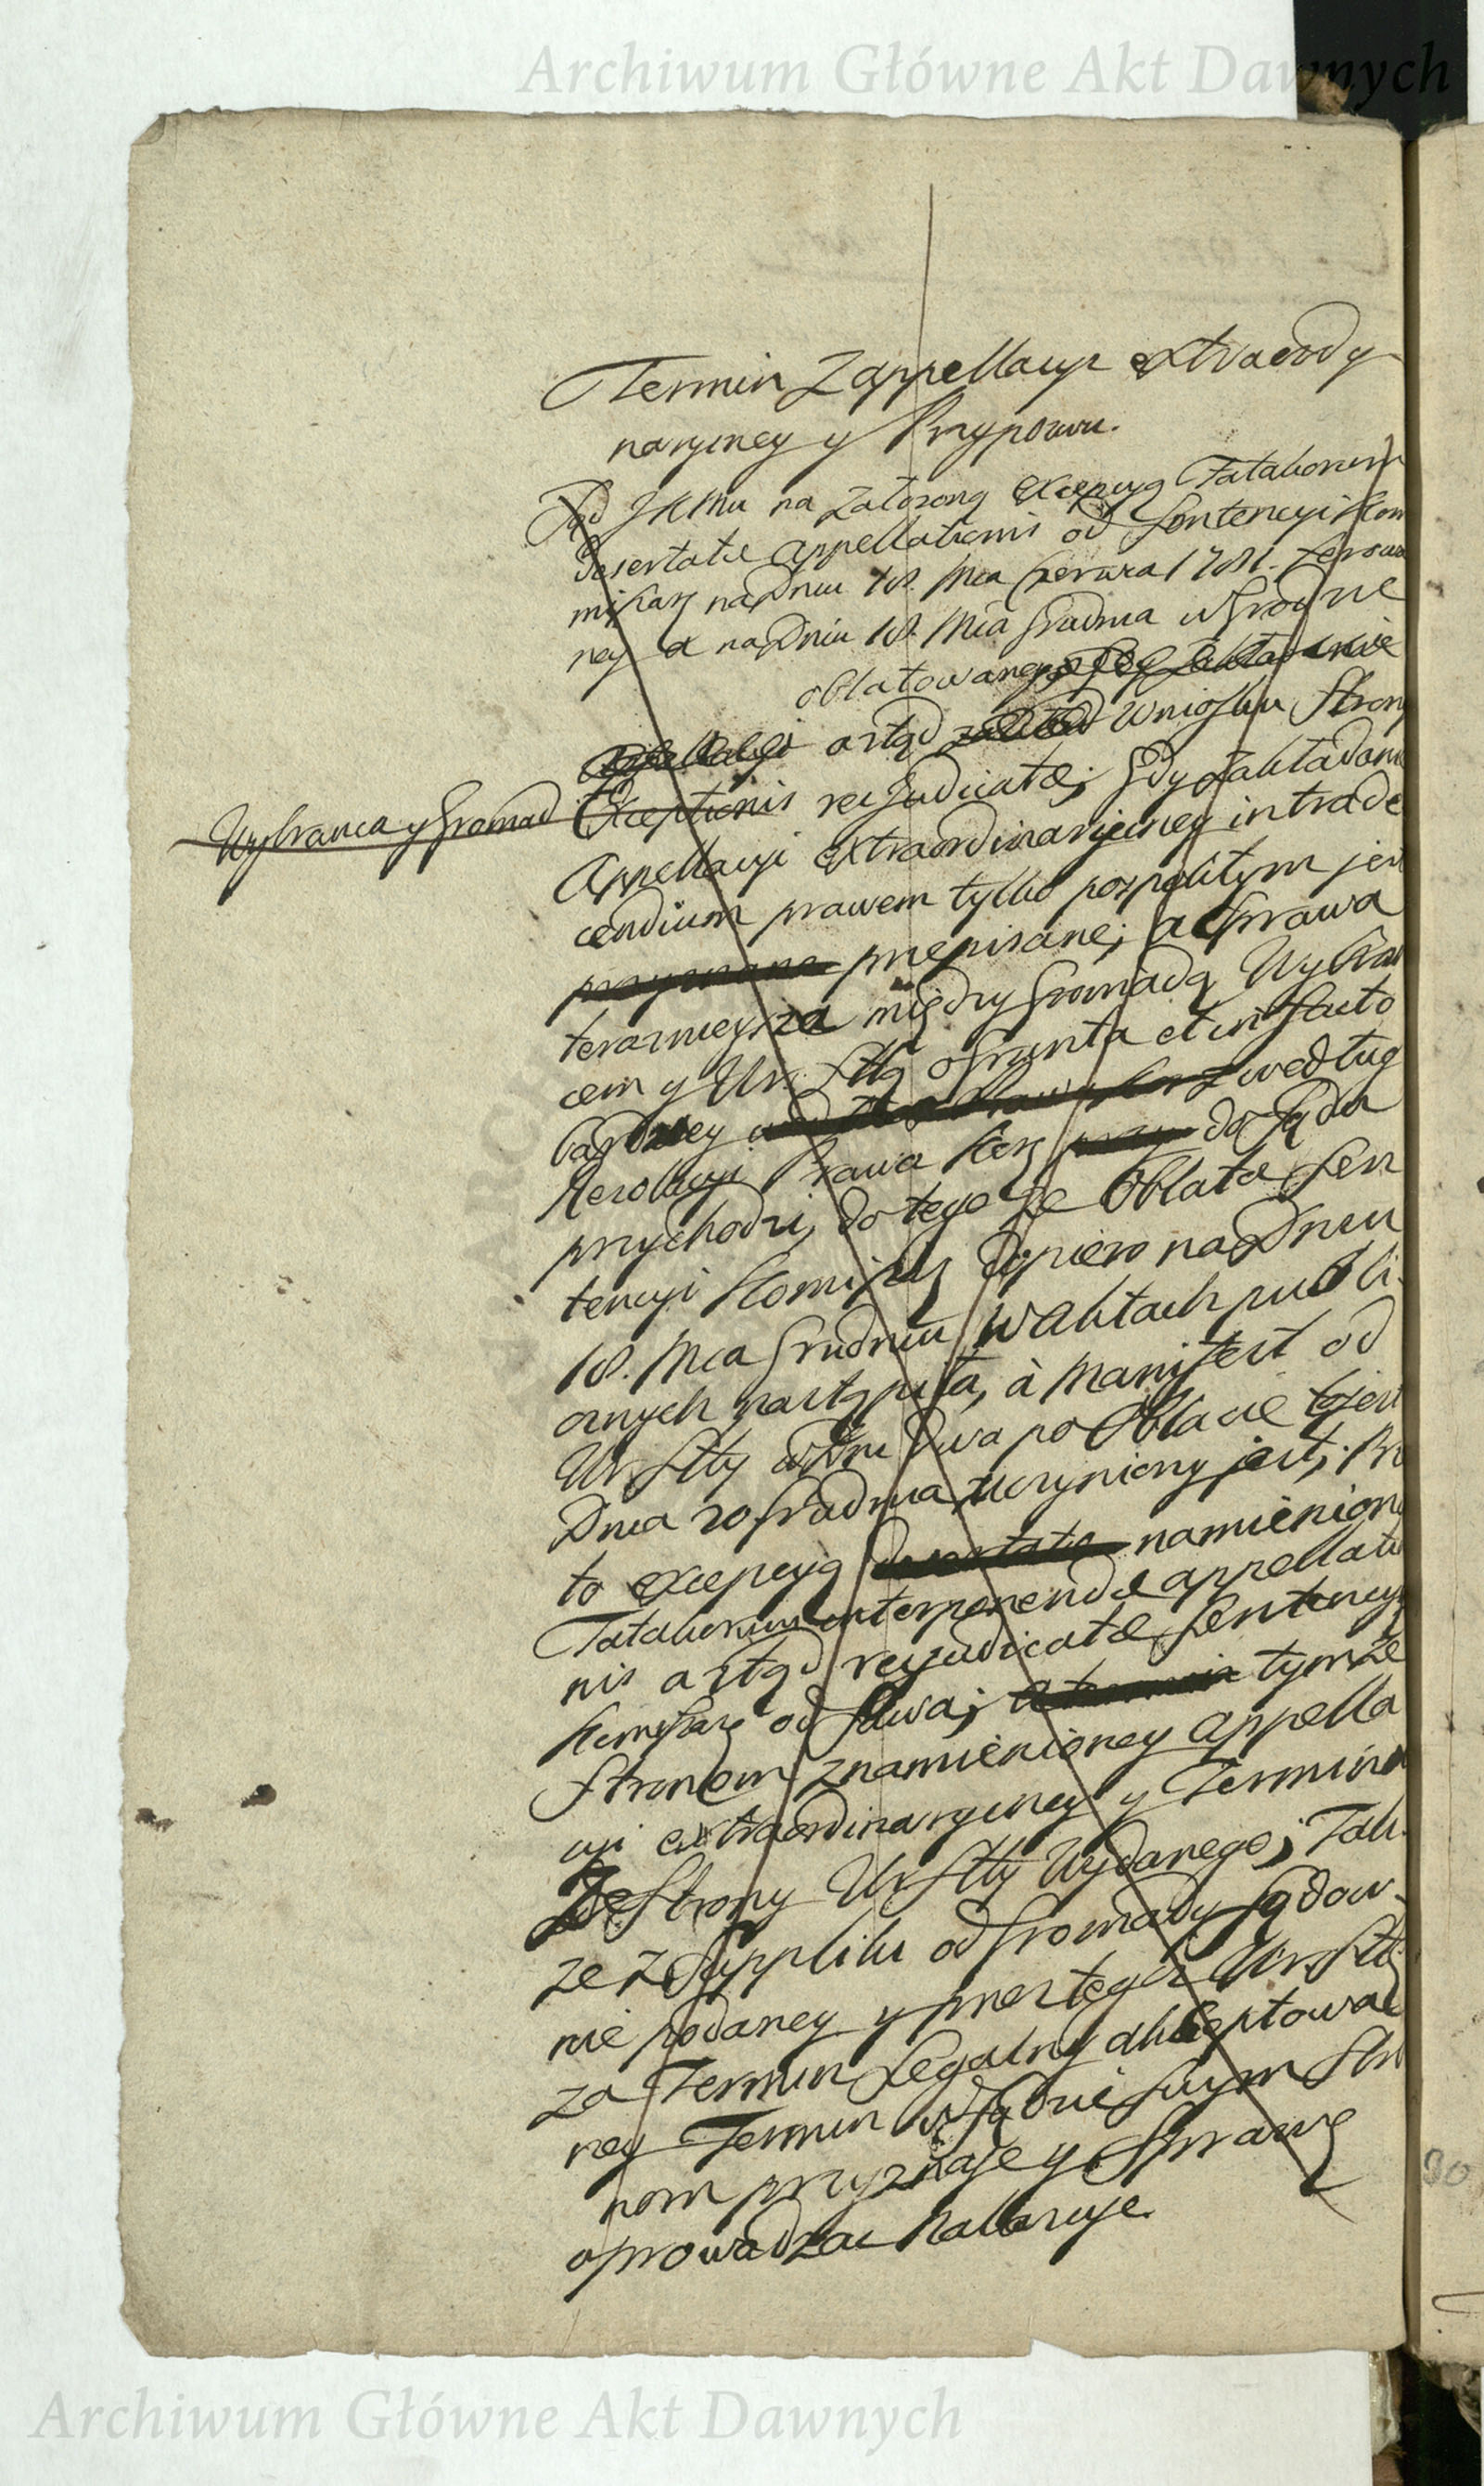 Archiwum Główne Akt Dawnych
Termin z appellacyi extraordy
naryiney y Przypowu.
Sąd JKMci na założoną excepcyą Fataliorum
desertatæ appellationis od Sentencyi Kom
miſſarſ na Dniu 18. Mca Czerwca 1781. ferowa
ney a na Dniu 18. Mca Grudnia w Grodzie
oblatowaney
a ztąd wniosku Strony
Exceptionis rei Judicatæ; Gdy zakładaniu
Wybrańca y Gromad
Appellacyi extraordinaryiney intra de
cendium prawem tylko pospolitym jest
przepisane; a Sprawa
teraznieysza między Gromadą Wybrań
cem y Ur. Sttą o Grunta et in Statu
według
Rezolucyi Prawa do Sądu
przychodzi, do tego że Oblata Sen
tencyi Komiſſ dopiero na Dniu
18. Mca Grudnia w Aktach publi-
cznych nastąpiła, à Manifest od
Ur. Stty w Dni dwa po Oblacie to jest
Dnia 20 Grudnia uczyniony jest; Prze
to excepcyą namienioną
Fataliorum interponendæ appellatio
nis a ztąd rei judicatæ Sentencyi
od suwa; tymże
Stronom z namienioney appella
cyi extraordinaryiney y Terminu
ze Strony Ur. Stty Wydanego; Tak-
że z Suppliki od Gromady Sądow-
nie podaney y przez tegoż Ur. Stt
za Termin Legalny akceptowa
ney Termin w Sądzie swym Stro
nom przyznaje y Sprawę
oprowadzać nakazuje.
90
Archiwum Główne Akt Dawnych